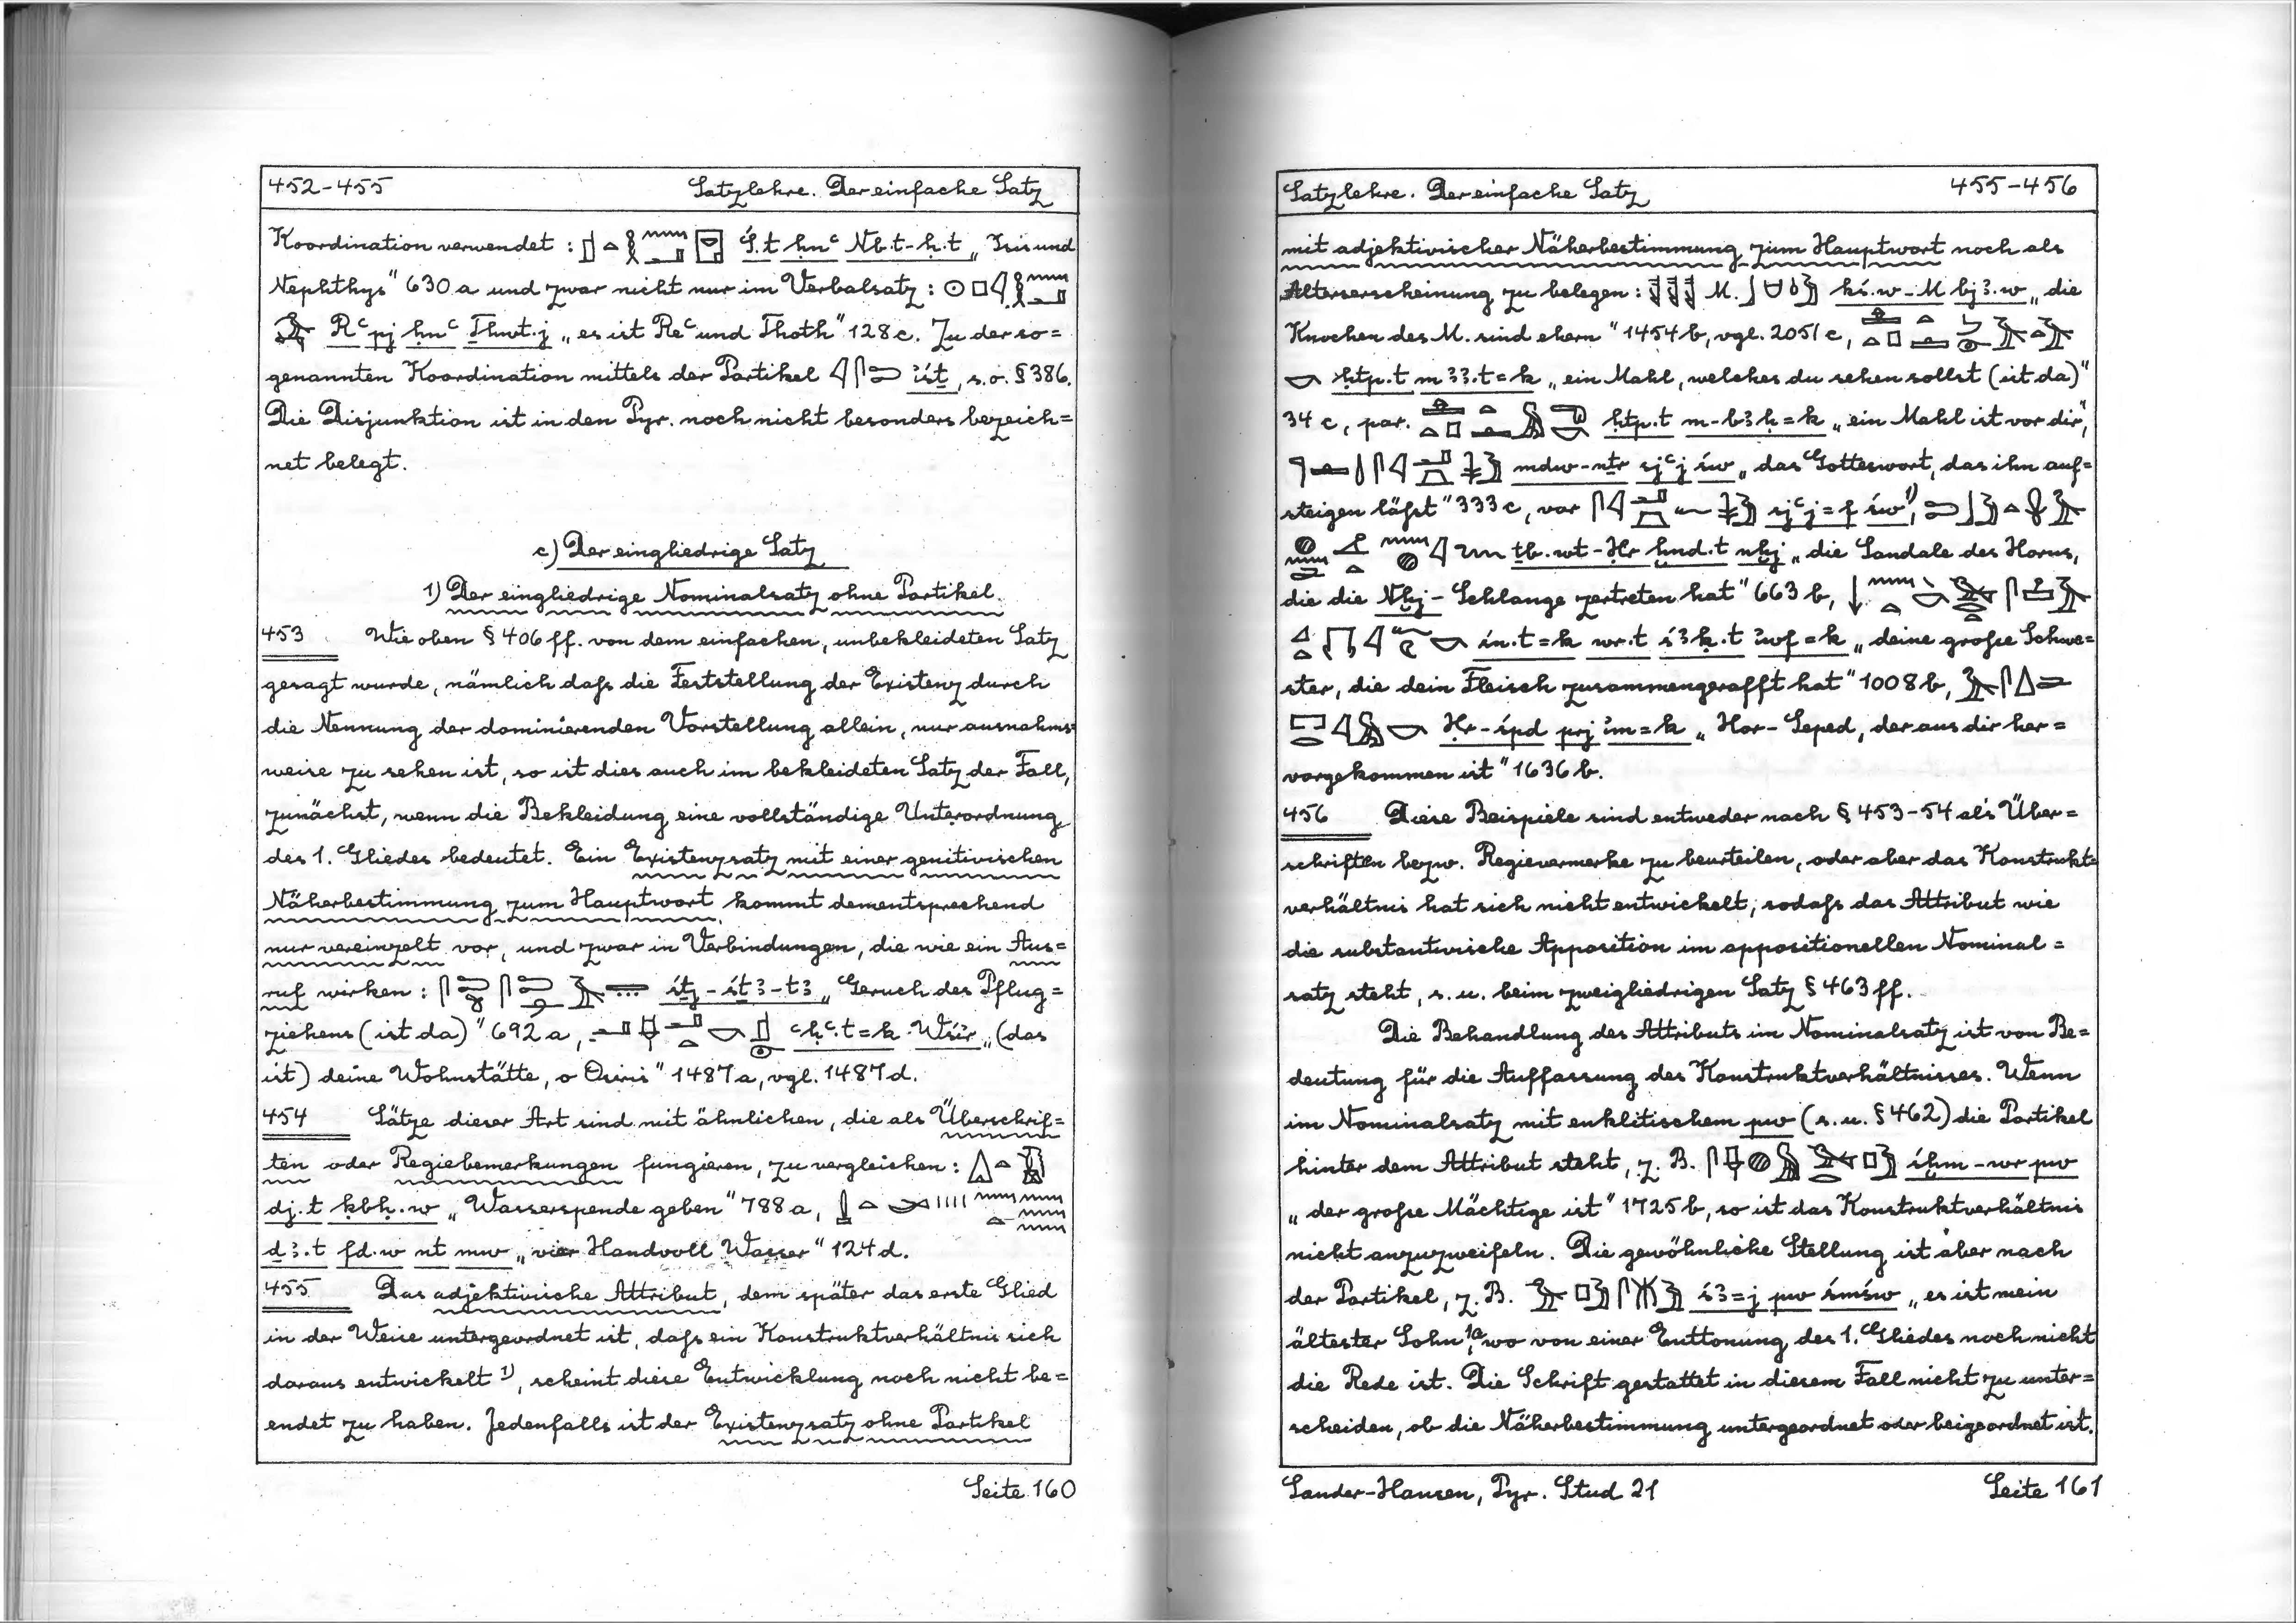 452-455 Satzlehre. Der einfache Satz
Koordination verwendet : 𓊨𓏏𓎛𓈖𓂝𓉠 Ś.t ḥnꜥ Nb.t-ḥ.t „Isis und
Nephthys" 630 a und zwar nicht nur im Verbalsatz : 𓇳𓊪𓇋𓎛𓈖𓂝
𓅝 Rꜥ pj ḥnꜥ Ḏḥwt.j „es ist Reꜥ und Thoth" 128 c. Zu der so=
genannten Koordination mittels der Partikel 𓇋𓋴𓍿 ꞽśṯ, s.o. § 386.
Die Disjunktion ist in den Pyr. noch nicht besonders bezeich=
net belegt.
c) Der eingliedrige Satz
1) Der eingliedrige Nominalsatz ohne Partikel.
453 Wie oben § 406 ff. von dem einfachen, unbekleideten Satz
gesagt wurde, nämlich daſs die Feststellung der Existenz durch
die Nennung der dominierenden Vorstellung allein, nur ausnahms=
weise zu sehen ist, so ist dies auch im bekleideten Satz der Fall,
zunächst, wenn die Bekleidung eine vollständige Unterordnung
des 1. Gliedes bedeutet. Ein Existenzsatz mit einer genitivischen
Näherbestimmung zum Hauptwort kommt dementsprechend
nur vereinzelt vor, und zwar in Verbindungen, die wie ein Aus=
ruf wirken : śṯj-śṯꜣ-tꜣ „Geruch des Pflug=
ziehens (ist da)" 692 a, ꜥḥꜥ.t=k Wśir „(das
ist) deine Wohnstätte, o Osiris" 1487 a, vgl. 1487 d.
454 Sätze dieser Art sind mit ähnlichen, die als Überschrif=
ten oder Regiebemerkungen fungieren, zu vergleichen :
dj.t ḳbḥ.w „Wasserspende geben" 788 a,
ḏꜣ.t fd.w nt mw „vier Handvoll Wasser" 124 d.
455 Das adjektivische Attribut, dem später das erste Glied
in der Weise untergeordnet ist, daſs ein Konstruktverhältnis sich
daraus entwickelt 1), scheint diese Entwicklung noch nicht be=
endet zu haben. Jedenfalls ist der Existenzsatz ohne Partikel
Seite 160
Satzlehre. Der einfache Satz 455-456
mit adjektivischer Näherbestimmung zum Hauptwort noch als
Alterserscheinung zu belegen : M. ḳś.w-M bjꜣ.w „die
Knochen des M. sind ehern" 1454 b, vgl. 2051 c,
ḥtp.t mꜣꜣ.t=k „ein Mahl, welches du sehen sollst (ist da)"
34 c, par. ḥtp.t m-bꜣḥ=k „ein Mahl ist vor dir",
mdw-nṯr sjꜥj św „das Gotteswort, das ihn auf=
steigen läſst" 333 c, var sjꜥj=f św 1),
ṯb.wt-Ḥr ḫnd.t nḫj „die Sandale des Horus,
die die Nḫj-Schlange zertreten hat" 663 b,
śn.t=k wr.t śꜣḳ.t ꞽwf=k „deine groſse Schwe=
ster, die dein Fleisch zusammengerafft hat" 1008 b,
Ḥr-śpd prj ꞽm=k „Hor-Seped, der aus dir her=
vorgekommen ist" 1636 b.
456 Diese Beispiele sind entweder nach § 453-54 als Über=
schriften bezw. Regievermerke zu beurteilen, oder aber das Konstrukt=
verhältnis hat sich nicht entwickelt, sodaſs das Attribut wie
die substantivische Apposition im appositionellen Nominal=
satz steht, s. u. beim zweigliedrigen Satz § 463 ff.
Die Behandlung des Attributs im Nominalsatz ist von Be=
deutung für die Auffassung des Konstruktverhältnisses. Wenn
im Nominalsatz mit enklitischem pw (s. u. § 462) die Partikel
hinter dem Attribut steht, z. B. śḫm-wr pw
„der groſse Mächtige ist" 1725 b, so ist das Konstruktverhältnis
nicht anzuzweifeln. Die gewöhnliche Stellung ist aber nach
der Partikel, z. B. śꜣ=j pw śmśw „es ist mein
ältester Sohn 1a, wo von einer Enttonung des 1. Gliedes noch nicht
die Rede ist. Die Schrift gestattet in diesem Fall nicht zu unter=
scheiden, ob die Näherbestimmung untergeordnet oder beigeordnet ist.
Sander-Hansen, Pyr. Stud 21 Seite 161